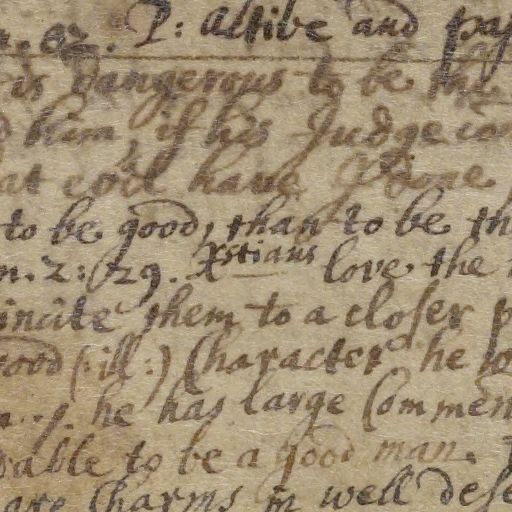 P: active and pas
is dangerous to be the
d him, if his Judge can
at evil have
to be good, than to be th
n. 2: 29. Xstians love the
incite them to a closer p
good (: ill:) Character he
he has large Commen
able to be a good man.
are Charms in well dese